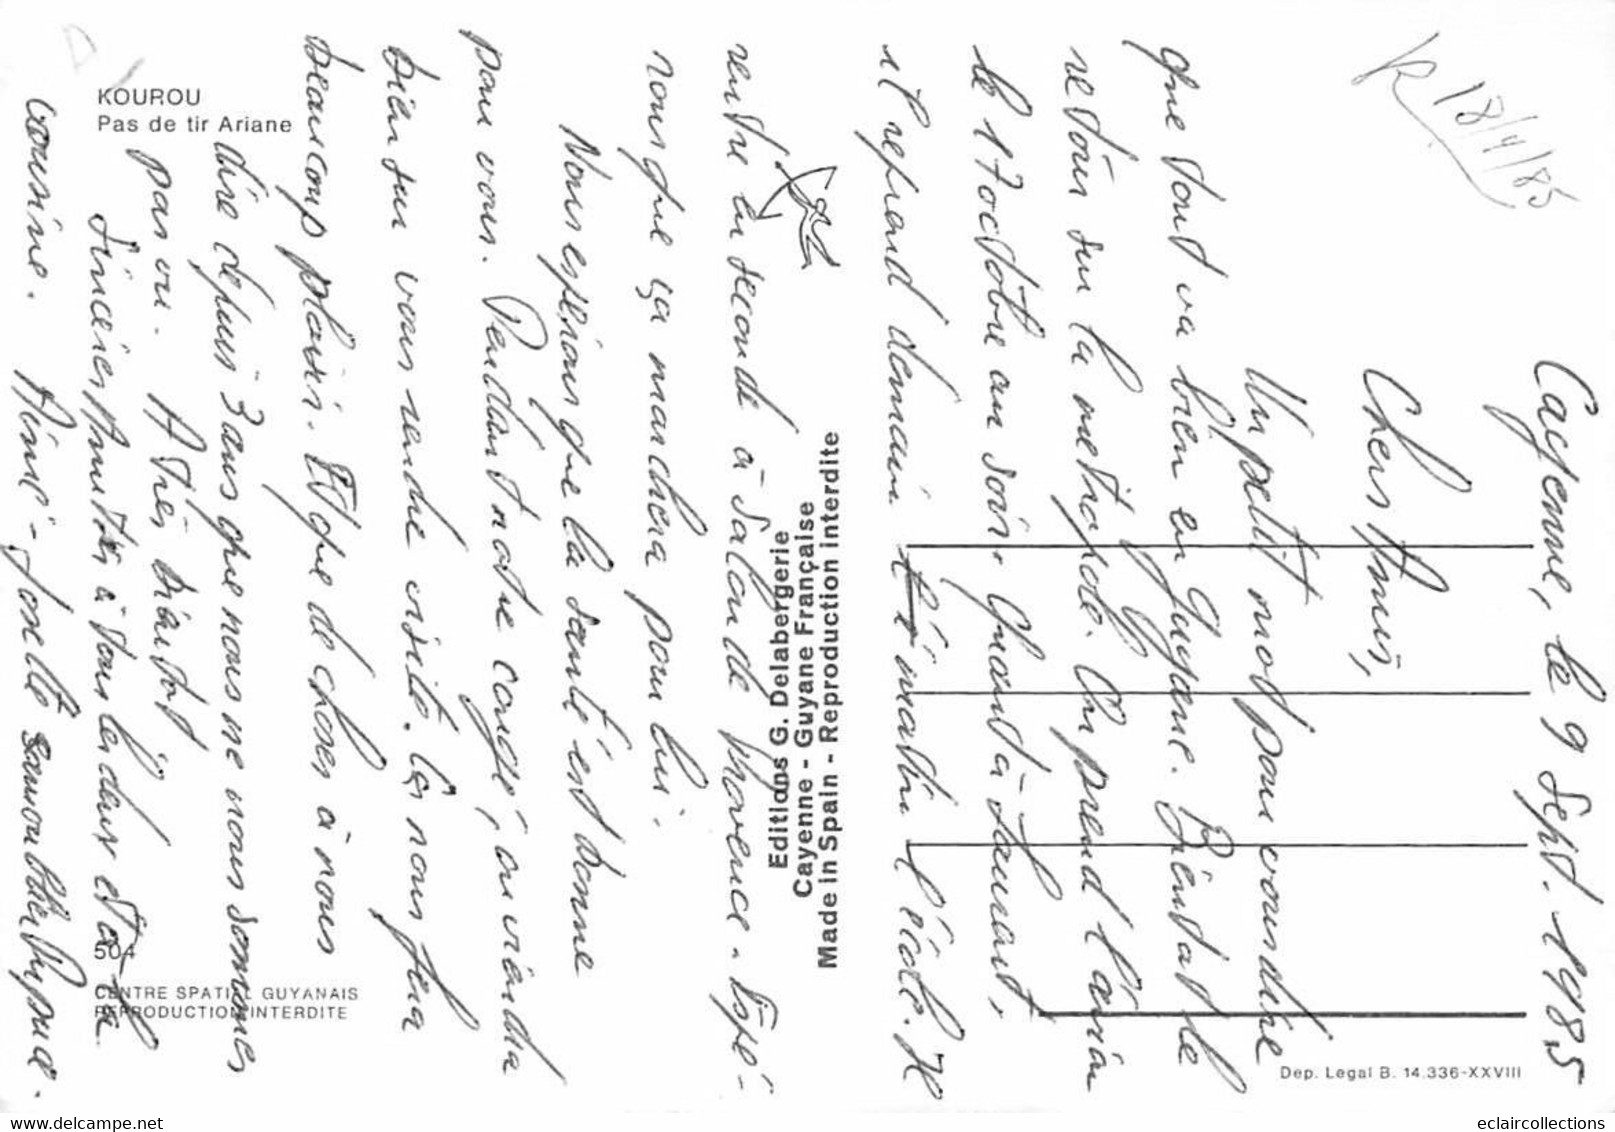 KOUROU
Pas de tir Ariane
K 18/9/85
Cayenne, le 9 Sept. 1985
Chers Amis,
Un petit mot pour vous dire
que tout va bien en Guyane. Bientôt le
retour sur la métropole. On prend l'avion
le 17 octobre au soir. Quant à Laurent,
il reprend demain matin l'école. Il
rentre en seconde à Salon de Provence. Espé-
rons que ça marchera pour lui.
Nous espérons que la santé est bonne
pour vous. Pendant notre congé, on viendra
bien sur vous rendre visite. Cà nous fera
beaucoup plaisir. Et que de choses à nous
dire depuis 3 ans que nous ne nous sommes
pas vu. A très bientôt
Sincères Amitiés à tous les deux et à la
cousine. Aimé - Josette
Editions G. Delabergerie
Cayenne - Guyane Française
Made in Spain - Reproduction interdite
504
CENTRE SPATIAL GUYANAIS
REPRODUCTION INTERDITE
Dep. Legal B. 14.336-XXVIII
eclaircollections
www.delcampe.net